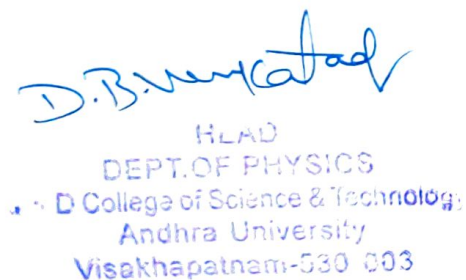 D.B.
HEAD
DEPT.OF PHYSICS
D College of Science & Technology
Andhra University
Visakhapatnam-530 003